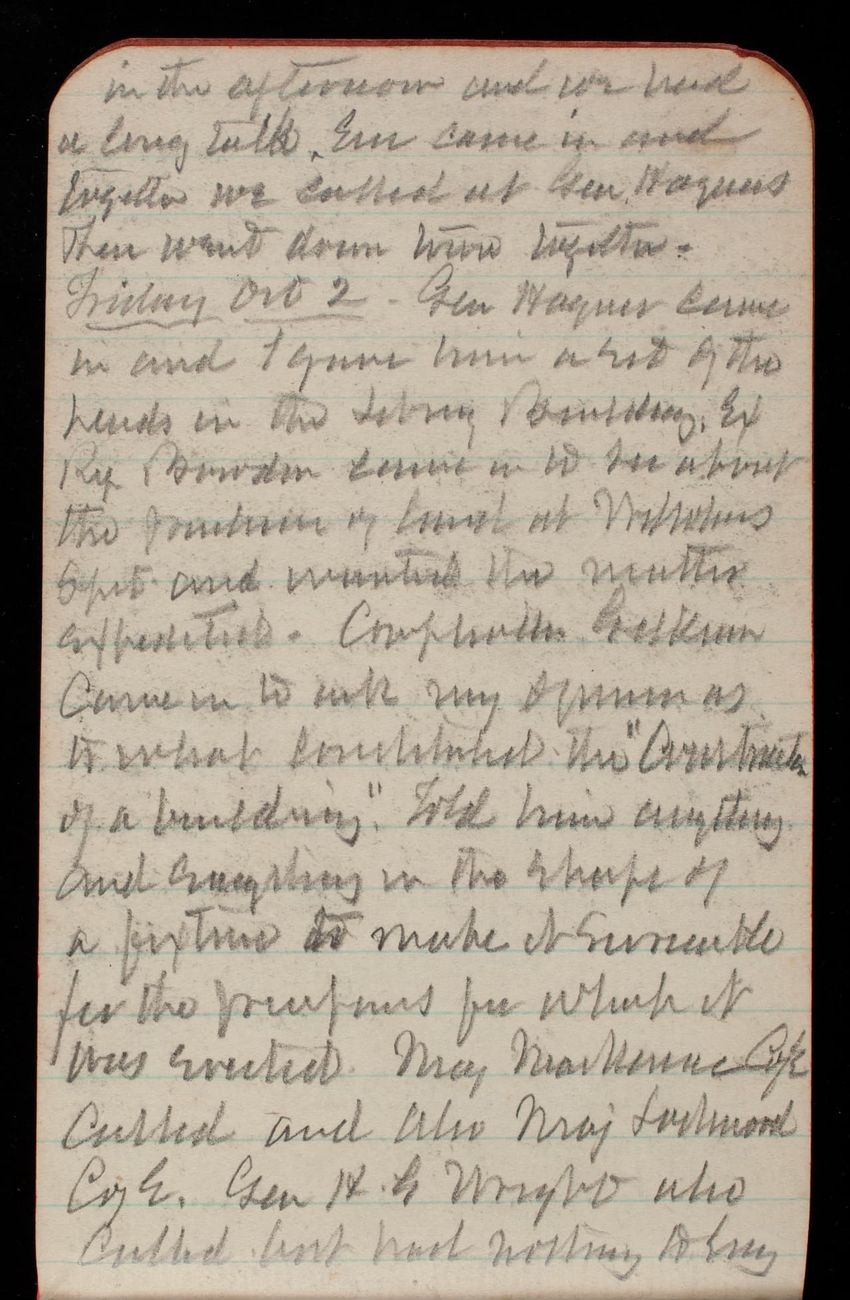 in the afternoon and we had
a long talk. Em came in and
together we called at Gen. Hagners
then went down town together.
Friday Oct 2 - Gen Hagner came
in and I gave him a list of the
heads in the Library Building. Ex
Rep. Bowden came in to see about
the purchase of land at
Spit and wanted the matter
expedited. Comptroller
Came in to ask my opinion as
to what constituted the "Construction
of a building". Told him anything
and everything in the shape of
a fixture to make it serviceable
for the purposes for which it
was erected. Maj Mackenzie C of E
Called and also Maj Lockwood
C of E. Gen H. G Wright also
Called but had nothing to say